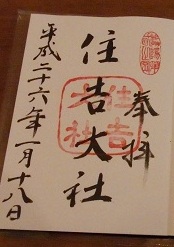 奉拝
住吉大社
住吉大社
平成二十六年一月十八日